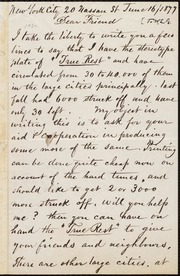 New York City, 20 Nassau St June 16/1877
Dear Friend
I take the liberty to write you a few
lines to say that I have the stereotype
plate of "True Rest" and have
circulated from 30 to 40.000 of them
in the large cities principally. last
Fall has 6000 struck off and have
only 30 left. My object in
writing this is to ask for your
aid & co=operation in producing
some more of the same. Printing
can be done quite cheap now on
account of the hard times, and
should like to get 2 or 3000
more struck off. Will you help
me? then you can have on
hand the "True Rest" to give
your friends and neighbours.
There are other large cities, at